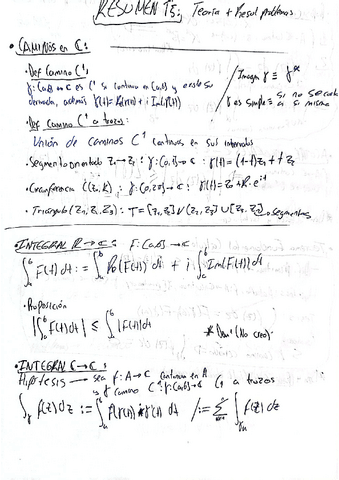 RESUMEN T5: Teoría + Resol problemas
• CAMINOS en ℂ:
• Def Camino C¹:
γ: [a,b] → ℂ es C¹ si continua en [a,b] y existe su
derivada, además γ'(t) = Re'(γ(t)) + i Im'(γ(t))
/ Imagen γ ≡ γ*
/ γ es simple ≡ si no se corta a sí misma
• Def camino C¹ a trozos:
Unión de caminos C¹ continuas en sus intervalos
• Segmento orientado z₁→z₂: γ: [0,1] → ℂ : γ(t) = (1-t)z₁ + t z₂
• Circunferencia C(z₀,R): γ: [0,2π] → ℂ : γ(t) = z₀ + R·e^{it}
• Triángulo (z₁, z₂, z₃): T = [z₁,z₂] ∪ [z₂,z₃] ∪ [z₃,z₁] segmentos
• INTEGRAL ℝ → ℂ: F: [a,b] → ℂ
∫_a^b F(t) dt := ∫_a^b Re(F(t)) dt + i ∫_a^b Im(F(t)) dt
• Proposición
|∫_a^b F(t) dt| ≤ ∫_a^b |F(t)| dt * Dem (No creo)
• INTEGRAL ℂ → ℂ:
Hipótesis — sea f: A → ℂ continua en A
y γ camino C¹ γ: [a,b] → ℂ C¹ a trozos
∫_γ f(z) dz := ∫_a^b f(γ(t)) * γ'(t) dt / := Σ ∫_{γₙ} f(z) dz